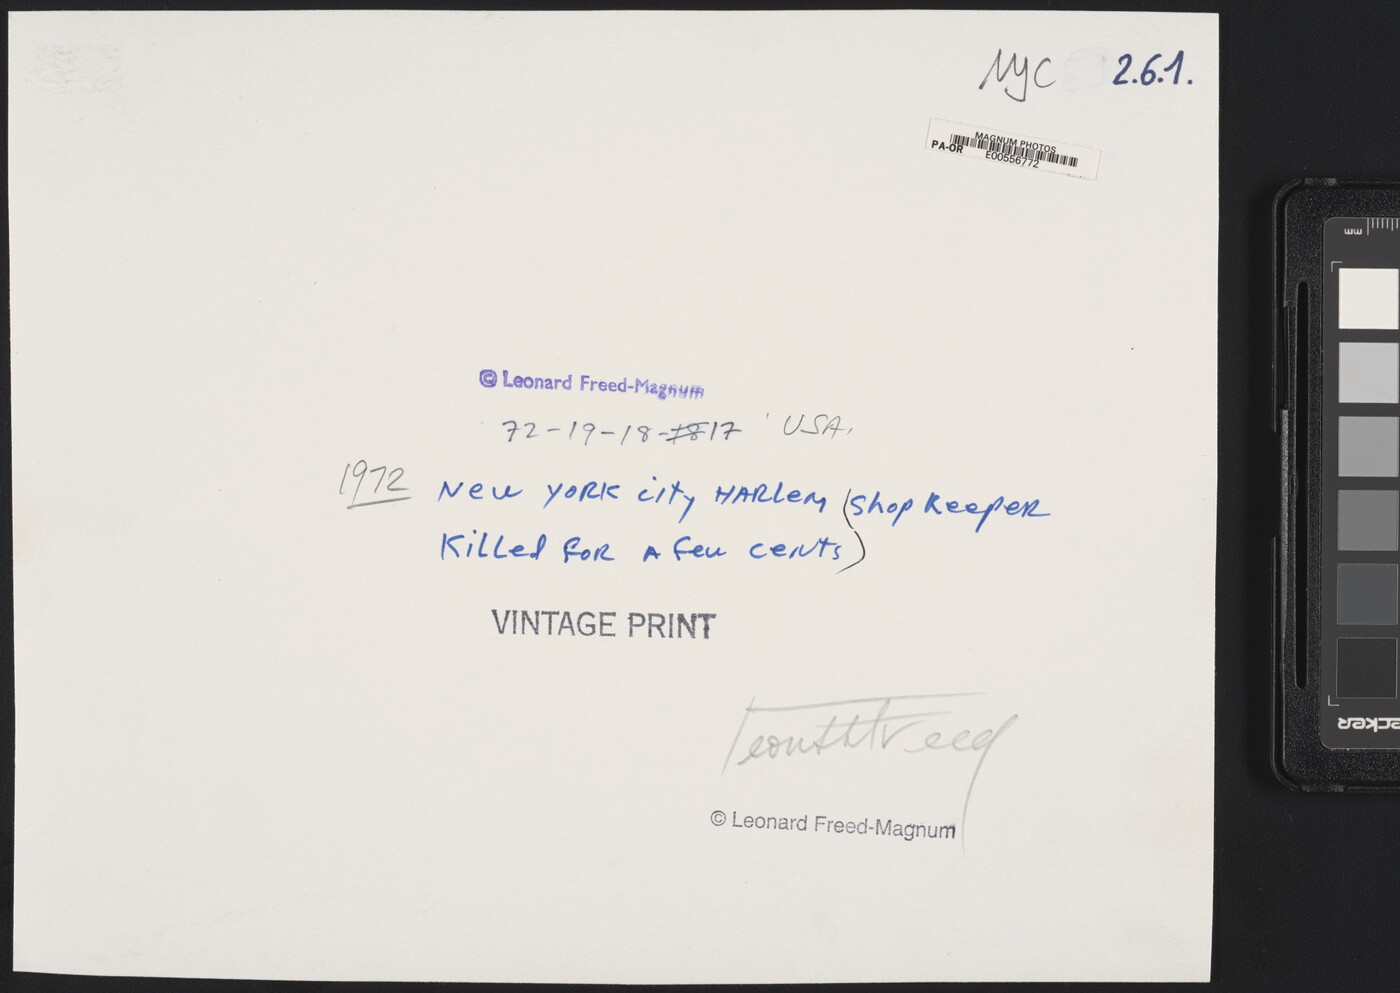 NYC 2.6.1.
MAGNUM PHOTOS
PA-OR
E00556772
mm
© Leonard Freed-Magnum
72-19-18-1817 USA.
1972 New YORK city HARlem (shop keeper
Killed for a few cents)
VINTAGE PRINT
Leonard Freed
© Leonard Freed-Magnum